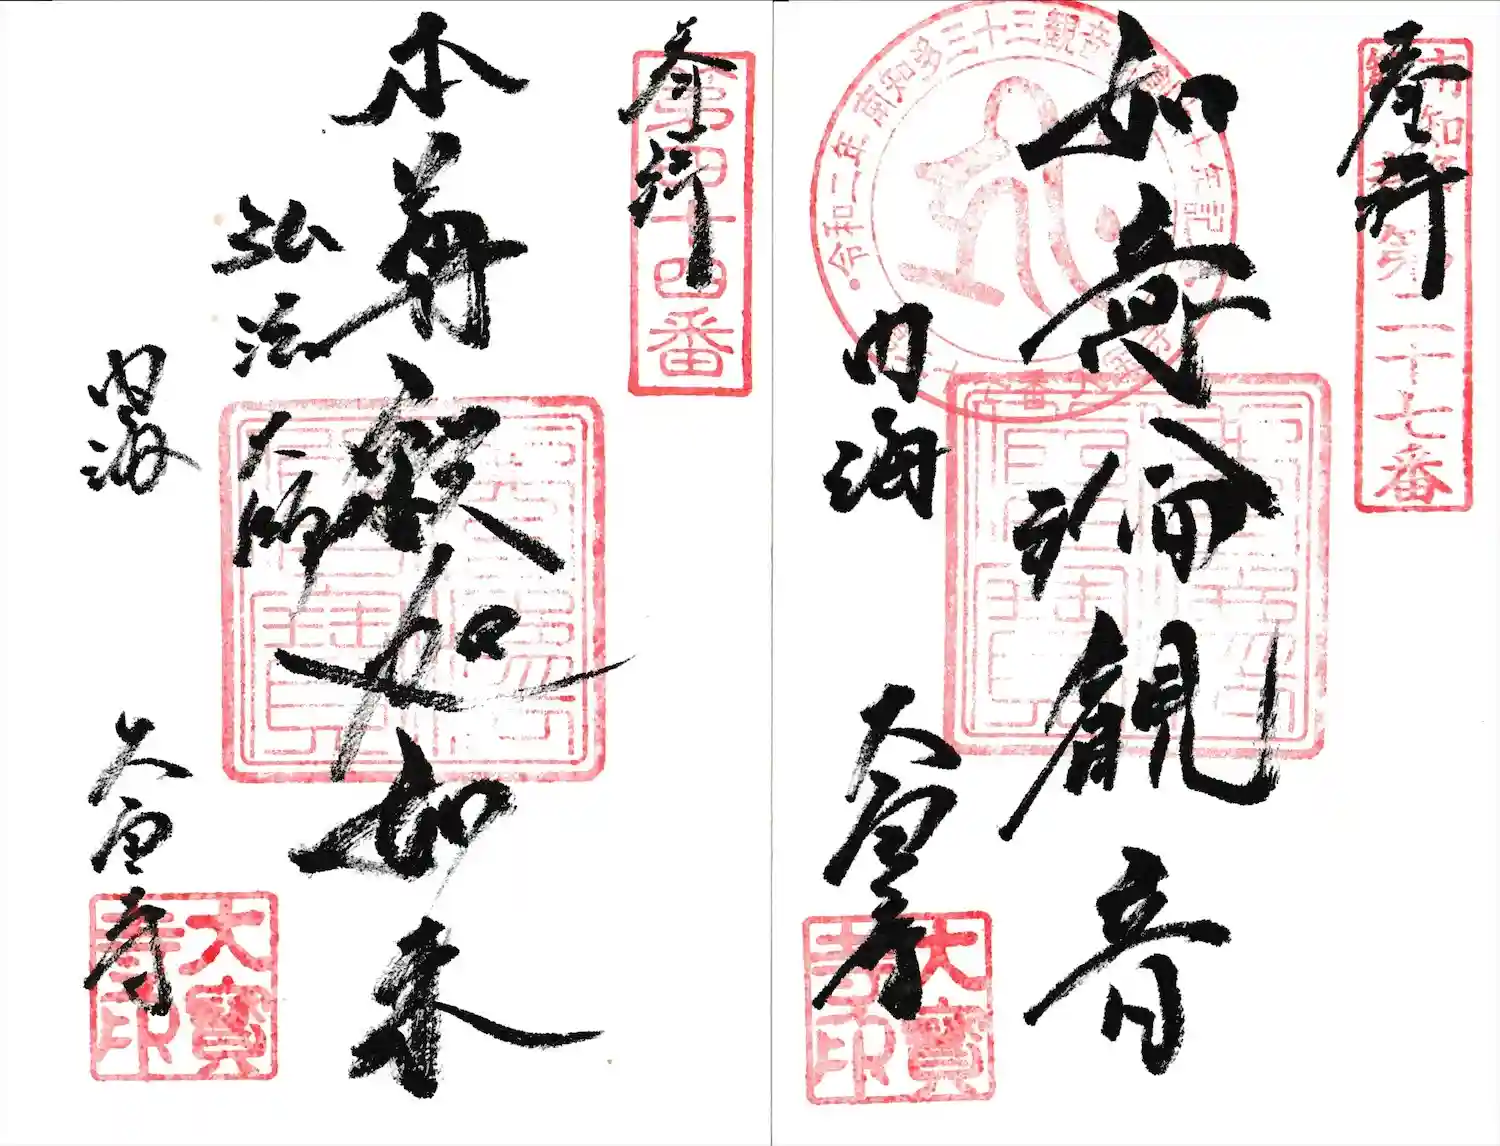 奉拝
南知多第二十七番
令和二年 南知多三十三観音
如意輪観音
内海
大宝寺
大寶寺印
奉拝
第四十四番
本尊釈迦如来
弘法大師
内海
大宝寺
大寶寺印